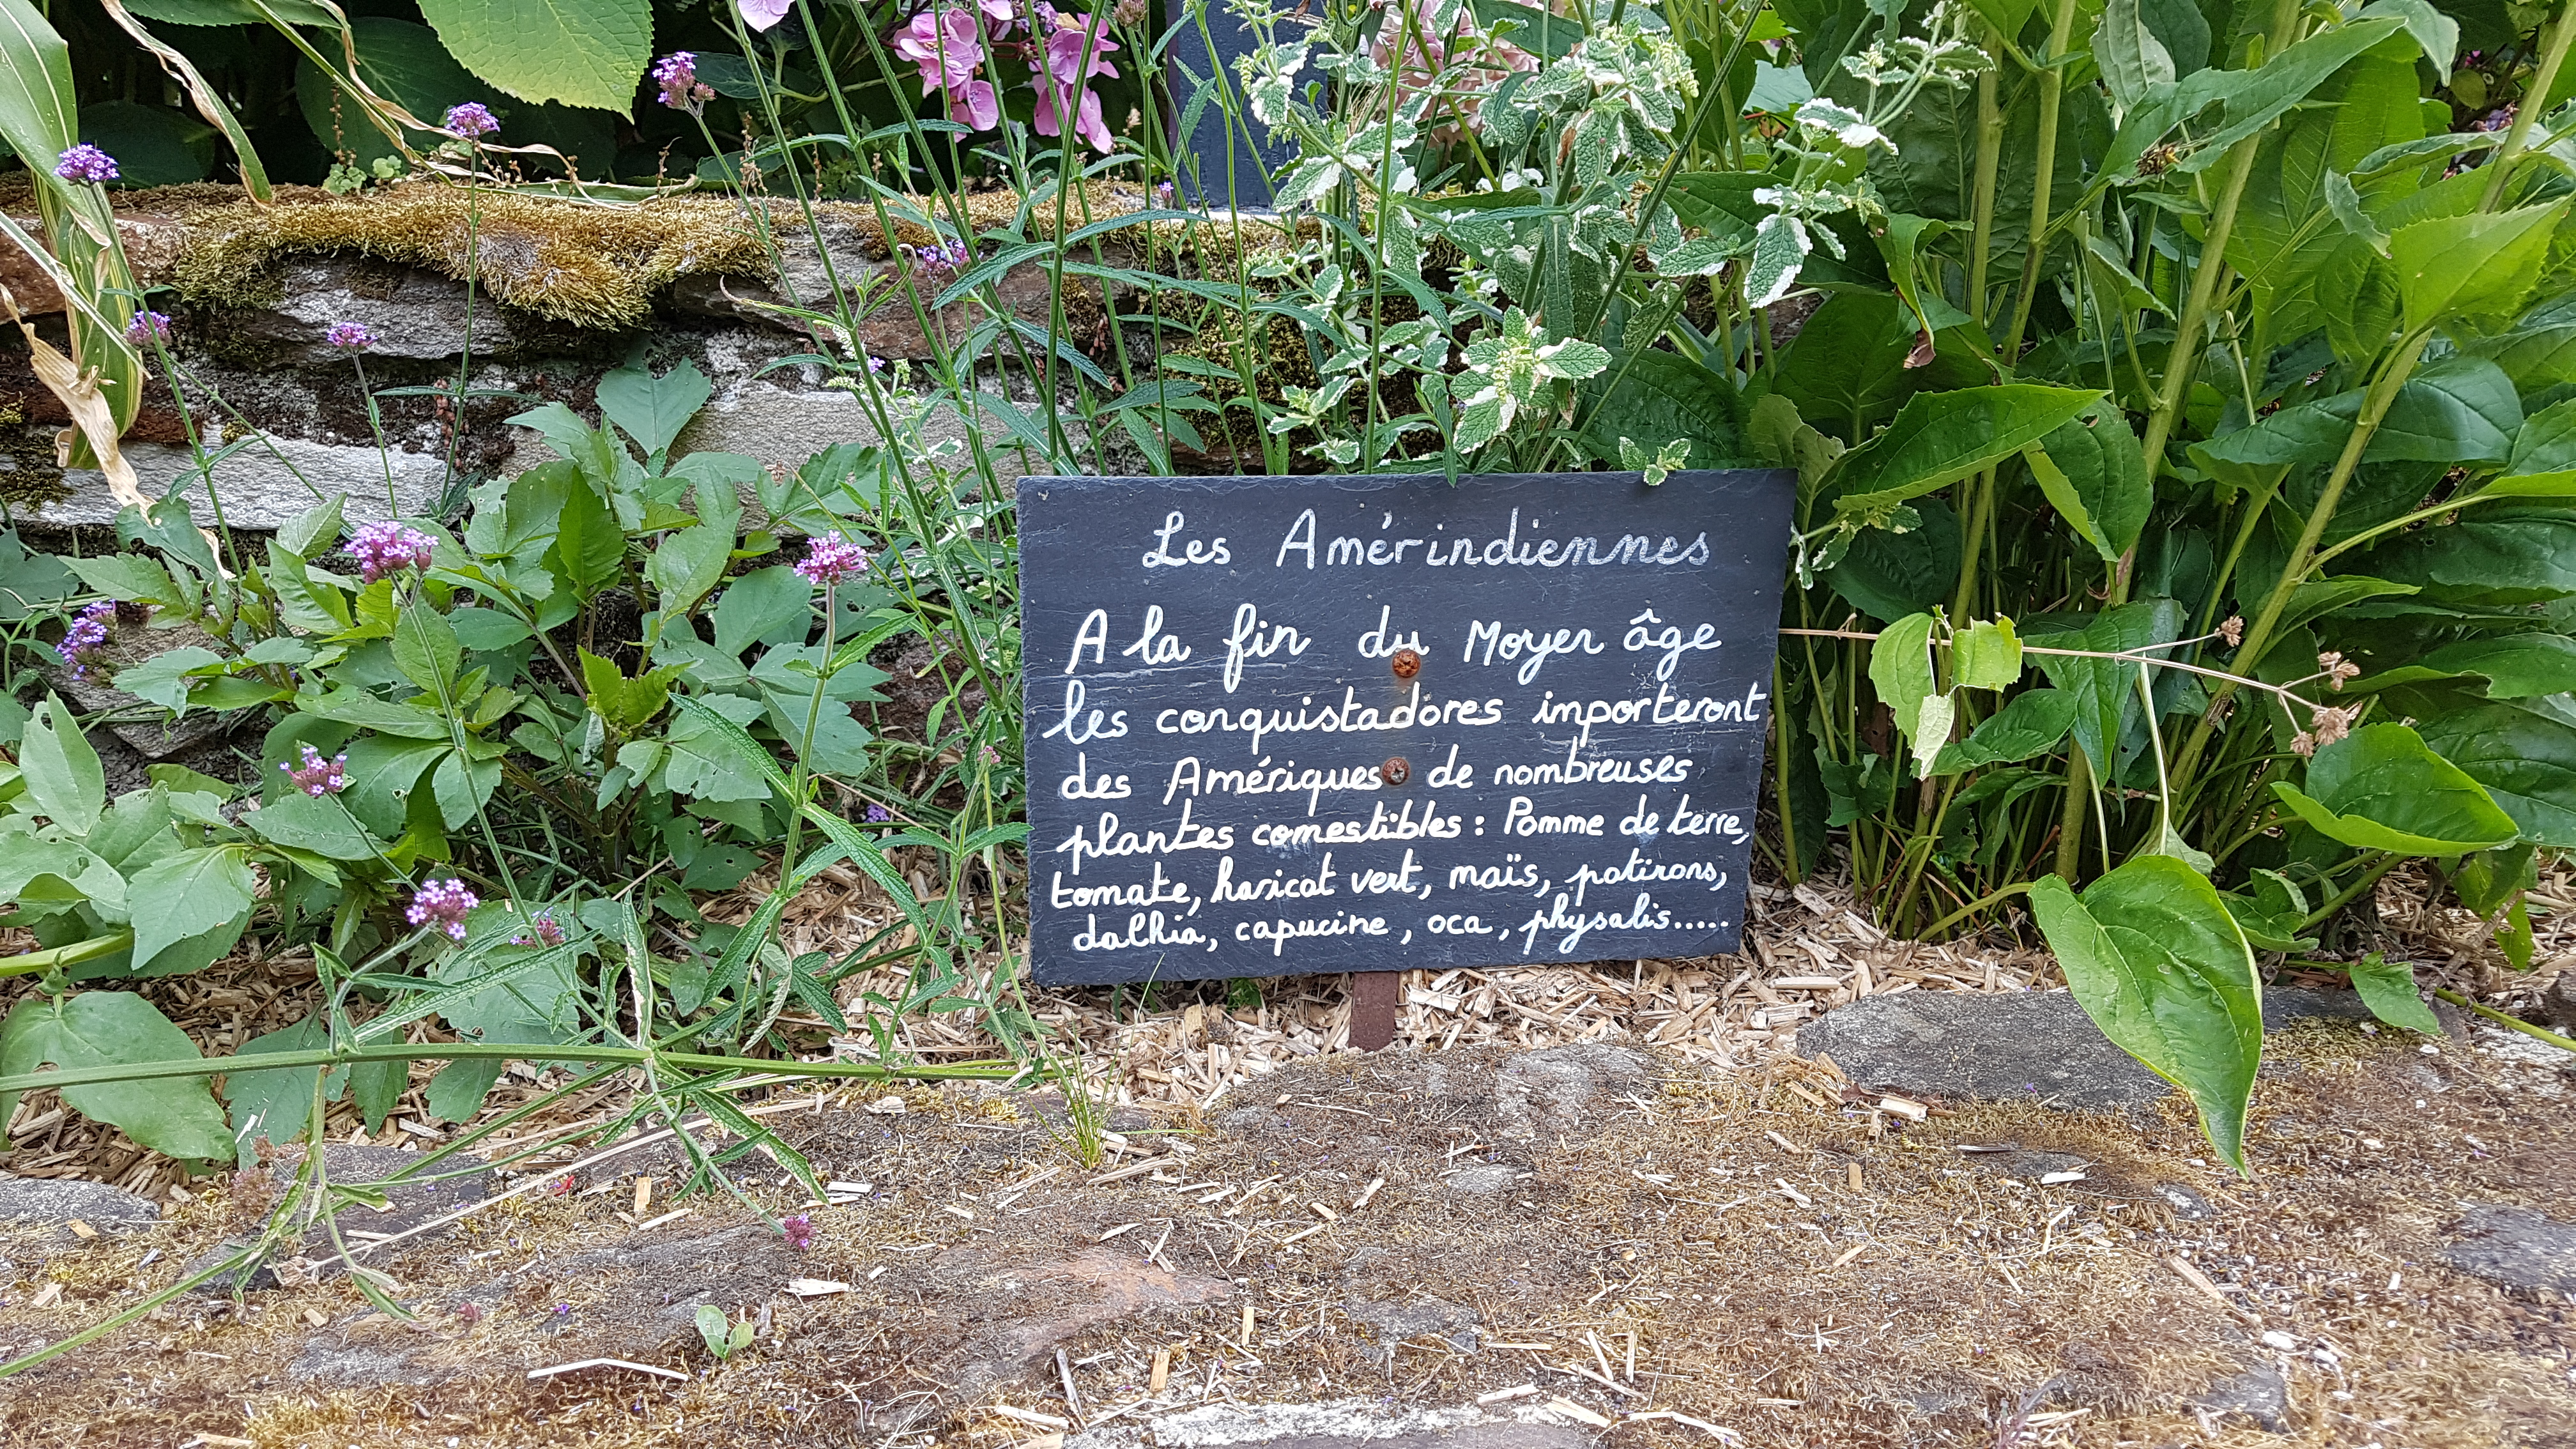 Les Amérindiennes
A la fin du Moyer âge
les conquistadores importeront
des Amériques de nombreuses
plantes comestibles : Pomme de terre,
tomate, haricot vert, maïs, potirons,
dalhia, capucine, oca, physalis.....